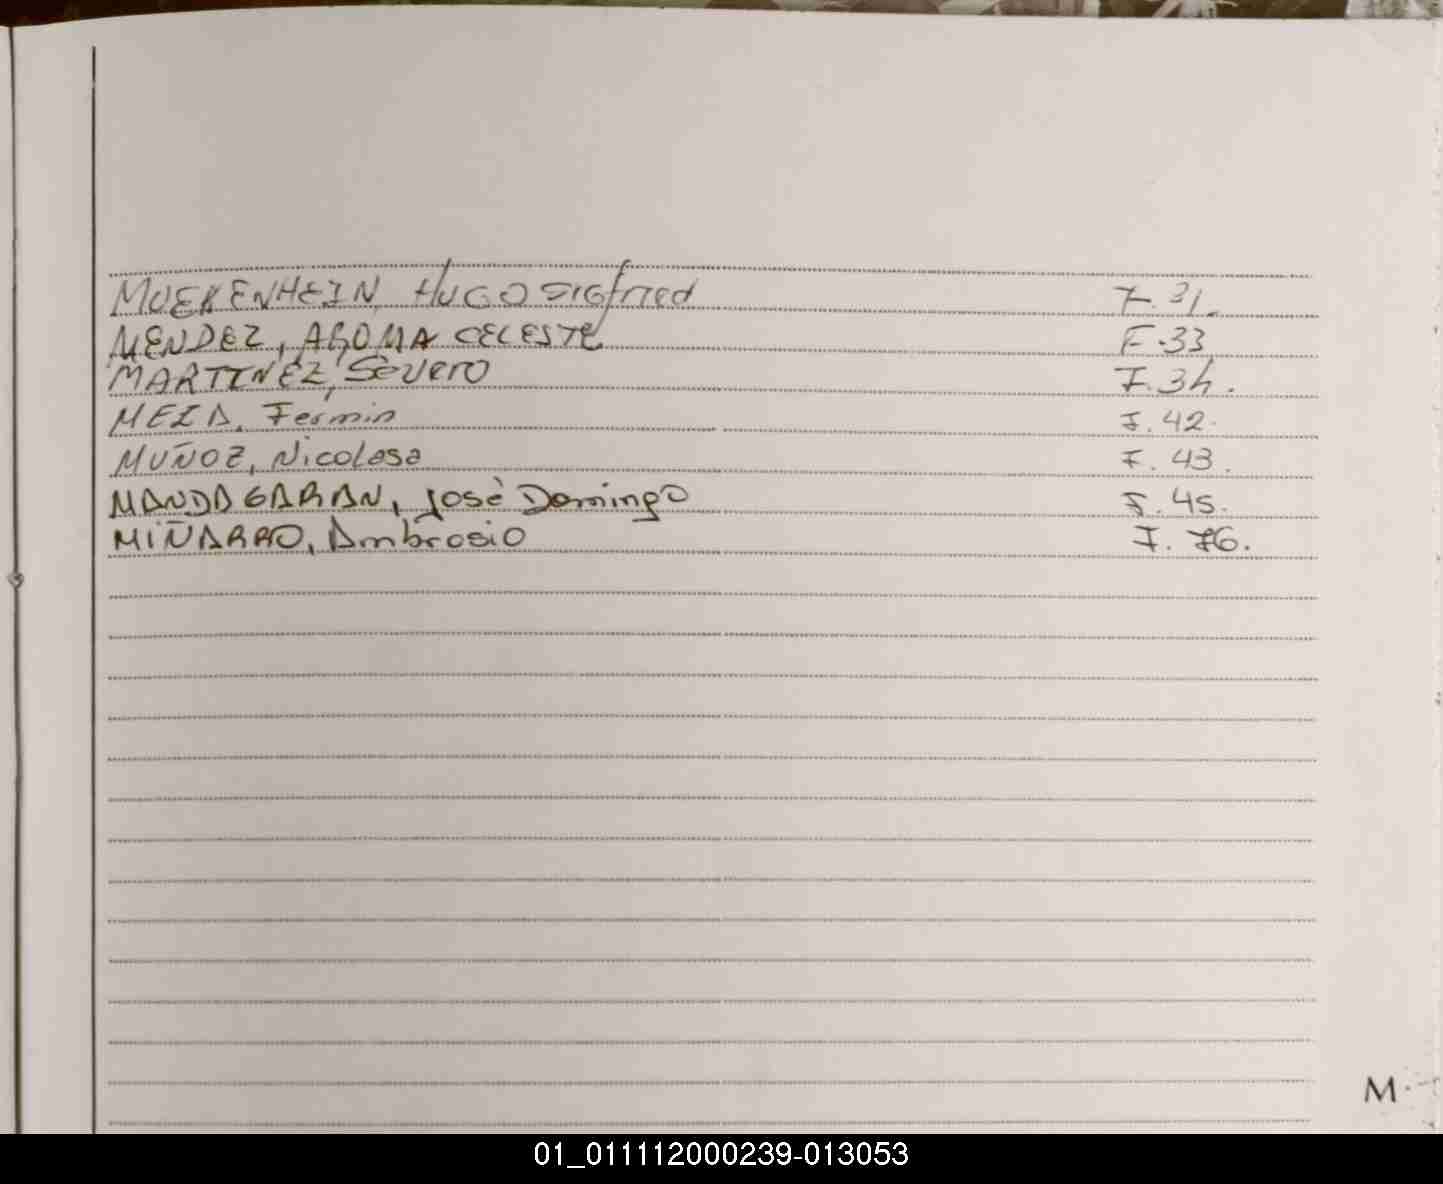 MUEKENHEIN, HUGO SIGfried F. 31.
MENDEZ, AROMA CELESTE F.33
MARTINEZ, Severo F.34.
MEZA, Fermin F.42.
MUÑOZ, Nicolasa F.43.
MANDAGARAN, José Domingo F.45.
MIÑARRO, Ambrosio F.76.
M
01_011112000239-013053